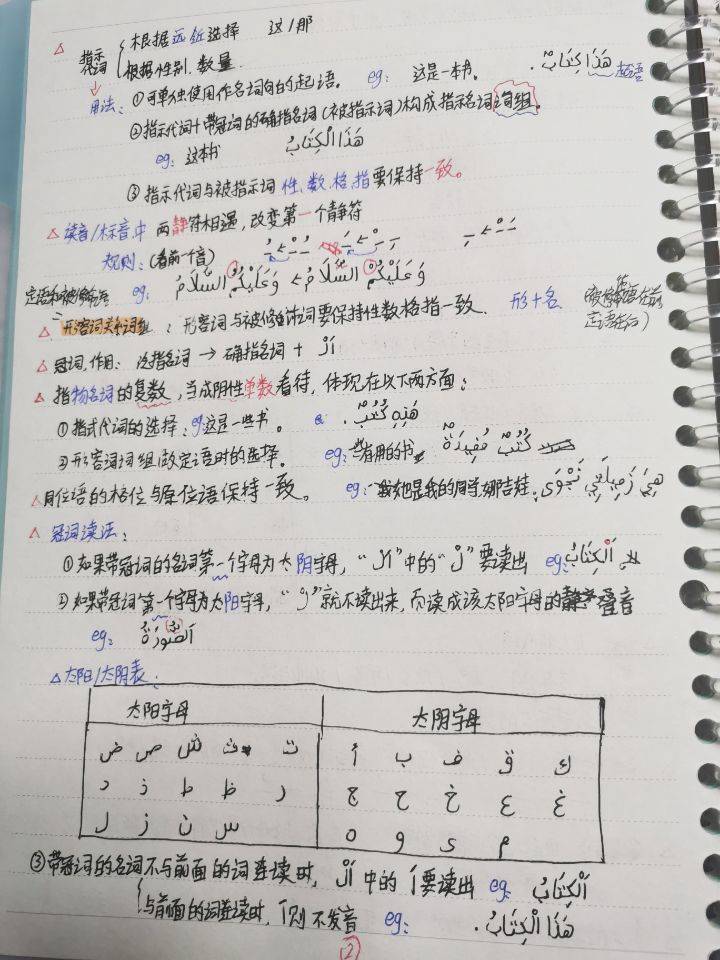 △ 指示代词 根据远近选择 这/那
根据性别、数量
用法：①可单独使用作名词句的起语。 eg： 这是一本书。 هَذَا كِتَابٌ. 起语
②指示代词+带冠词的确指名词(被指示词)构成指示名词词组。
eg：这本书 هَذَا الْكِتَابُ
③指示代词与被指示词 性、数、格、指要保持一致。
△ 读音/标音中 两静符相遇，改变第一个静符
规则：(看前一个音)
eg： وَعَلَيْكُمُ السَّلَامُ ← وَعَلَيْكُمْ السَّلَامُ
△ 形容词词组：形容词与被修饰词要保持性数格指一致. 形+名
△ 冠词.作用：泛指名词 → 确指名词 + اَلْ
△ 指物名词的复数，当成阴性单数看待，体现在以下两方面：
①指式代词的选择：eg这是一些书。 هَذِهِ كُتُبٌ.
②形容词词组做定语时的选择。 eg：一些有用的书 كُتُبٌ مُفِيدَةٌ
△同位语的格位与原位语保持一致。 eg：她是我的同学娜吉娃: هِيَ زَمِيلَتِي نَجْوَى
△ 冠词读法：
①如果带冠词的名词第一个字母为太阴字母，“اَلْ”中的“لْ”要读出 eg: اَلْكِتَابُ
②如果带冠词第一个字母为太阳字母，“لْ”就不读出来，而读成该太阳字母的叠音
eg： اَلصُّورَةُ
△太阳/太阴表：
太阳字母 太阴字母
ض ص ش ث ت أ ب ف ق ك
د ذ ط ظ ر ج ح خ ع غ
ل ز ن س ه و ى م
③带冠词的名词不与前面的词连读时，اَلْ 中的 اَ 要读出 eg: اَلْكِتَابُ
与前面的词连读时，ا则不发音 eg： هَذَا الْكِتَابُ.
②